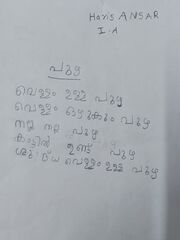 Haris ANSAR
I.A
പുഴ
വെള്ളം ഉള്ള പുഴ
വെള്ളം ഒഴുകും പുഴ
നല്ല നല്ല പുഴ
കാട്ടിൽ ഉണ്ട് പുഴ
ശുദ്ധ വെള്ളം ഉള്ള പുഴ